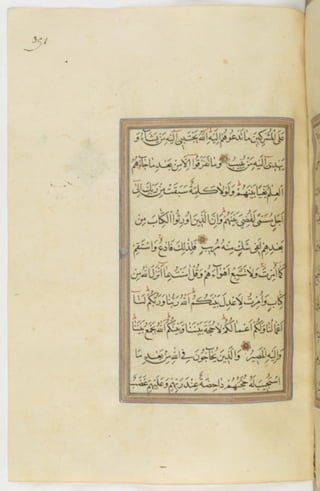 351
عَلَى الْمُشْرِكِينَ مَا تَدْعُوهُمْ إِلَيْهِ اللَّهُ يَجْتَبِي إِلَيْهِ مَنْ يَشَاءُ وَ
يَهْدِي إِلَيْهِ مَنْ يُنِيبُ وَمَا تَفَرَّقُوا إِلَّا مِنْ بَعْدِ مَا جَاءَهُمُ
الْعِلْمُ بَغْيًا بَيْنَهُمْ وَلَوْلَا كَلِمَةٌ سَبَقَتْ مِنْ رَبِّكَ إِلَى
أَجَلٍ مُسَمًّى لَقُضِيَ بَيْنَهُمْ وَإِنَّ الَّذِينَ أُورِثُوا الْكِتَابَ مِنْ
بَعْدِهِمْ لَفِي شَكٍّ مِنْهُ مُرِيبٍ فَلِذَلِكَ فَادْعُ وَاسْتَقِمْ
كَمَا أُمِرْتَ وَلَا تَتَّبِعْ أَهْوَاءَهُمْ وَقُلْ آمَنْتُ بِمَا أَنْزَلَ اللَّهُ مِنْ
كِتَابٍ وَأُمِرْتُ لِأَعْدِلَ بَيْنَكُمُ اللَّهُ رَبُّنَا وَرَبُّكُمْ لَنَا
أَعْمَالُنَا وَلَكُمْ أَعْمَالُكُمْ لَا حُجَّةَ بَيْنَنَا وَبَيْنَكُمُ اللَّهُ يَجْمَعُ بَيْنَنَا
وَإِلَيْهِ الْمَصِيرُ وَالَّذِينَ يُحَاجُّونَ فِي اللَّهِ مِنْ بَعْدِ مَا
اسْتُجِيبَ لَهُ حُجَّتُهُمْ دَاحِضَةٌ عِنْدَ رَبِّهِمْ وَعَلَيْهِمْ غَضَبٌ